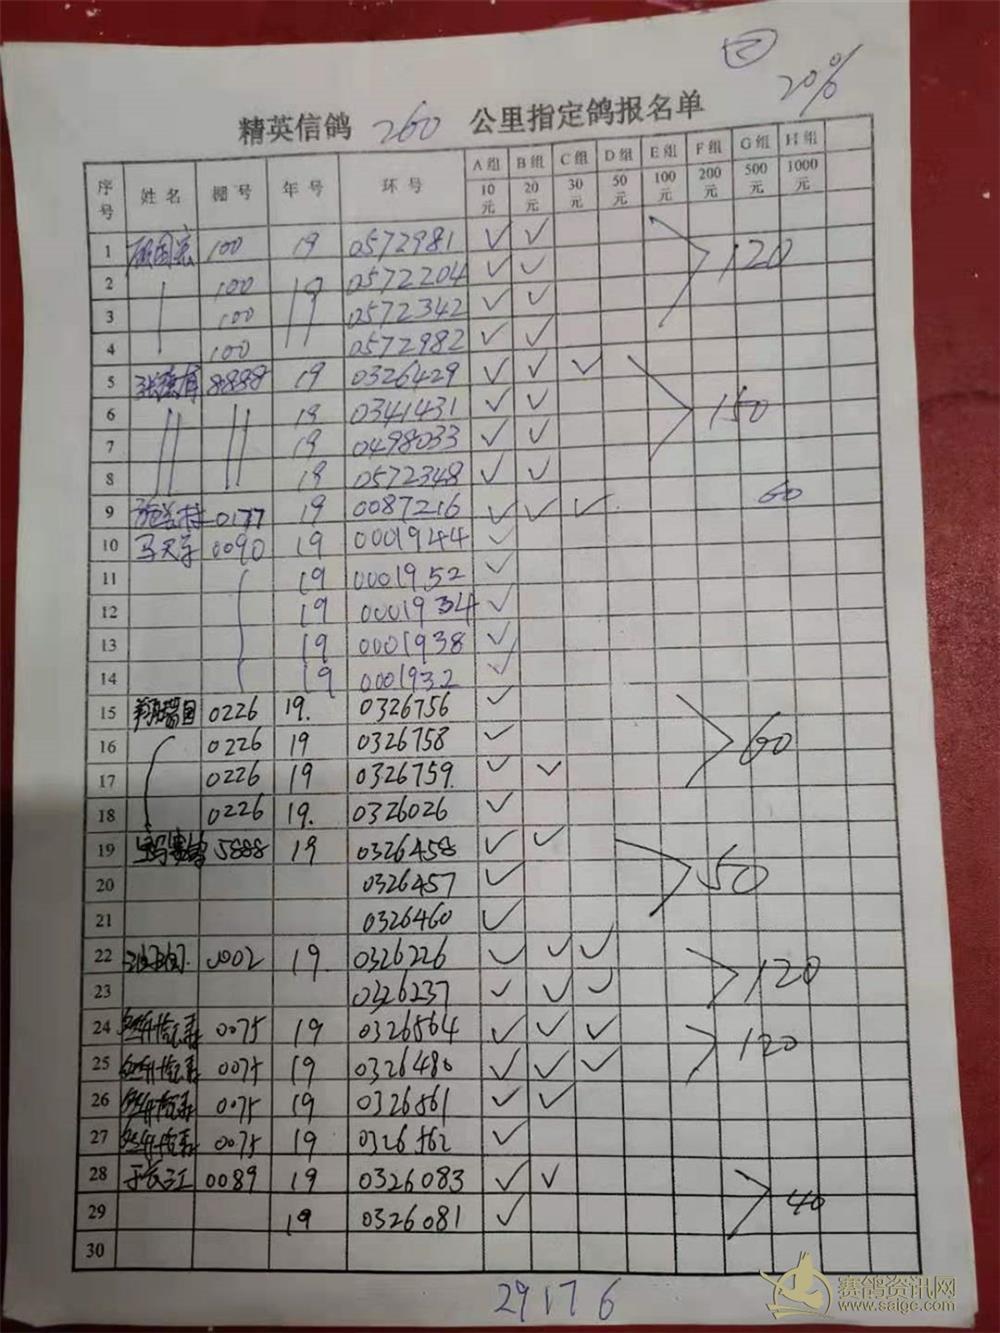 ② 20%
精英信鸽 260 公里指定鸽报名单
序号 姓名 棚号 年号 环号 A组 B组 C组 D组 E组 F组 G组 H组
10元 20元 30元 50元 100元 200元 500元 1000元
1 100 19 0572981 ✓ ✓
2 100 19 0572204 ✓ ✓ 120
3 100 0572342 ✓ ✓
4 100 0572982 ✓ ✓
5 8888 19 0326429 ✓ ✓ ✓
6 19 0341431 ✓ ✓ 150
7 19 0498033 ✓ ✓
8 19 0572348 ✓ ✓
9 0177 19 0087216 ✓ ✓ ✓ 60
10 0090 19 0001944 ✓
11 19 0001952 ✓
12 19 0001934 ✓
13 19 0001938 ✓
14 19 0001932 ✓
15 0226 19. 0326756 ✓
16 0226 19 0326758 ✓ 60
17 0226 19 0326759. ✓ ✓
18 0226 19. 0326026 ✓
19 5888 19 0326458 ✓ ✓
20 0326457 ✓ 50
21 0326460 ✓
22 0002 19. 0326226 ✓ ✓ ✓
23 0326237 ✓ ✓ ✓ 120
24 0075 19 0326564 ✓ ✓ ✓
25 0075 19 0326480 ✓ ✓ ✓ 120
26 0075 19 0326561 ✓ ✓
27 0075 19 0326562 ✓
28 于长江 0089 19 0326083 ✓ ✓
29 19 0326081 ✓ 40
30
29 17 6
赛鸽资讯网
www.saigc.com